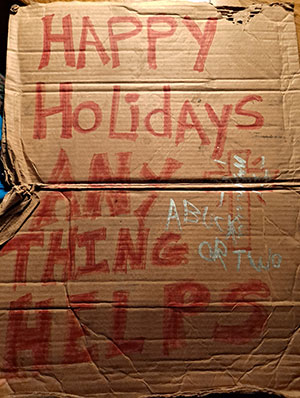 HAPPY
Holidays
ANY
THING
HELPS
A BUCK
OR TWO